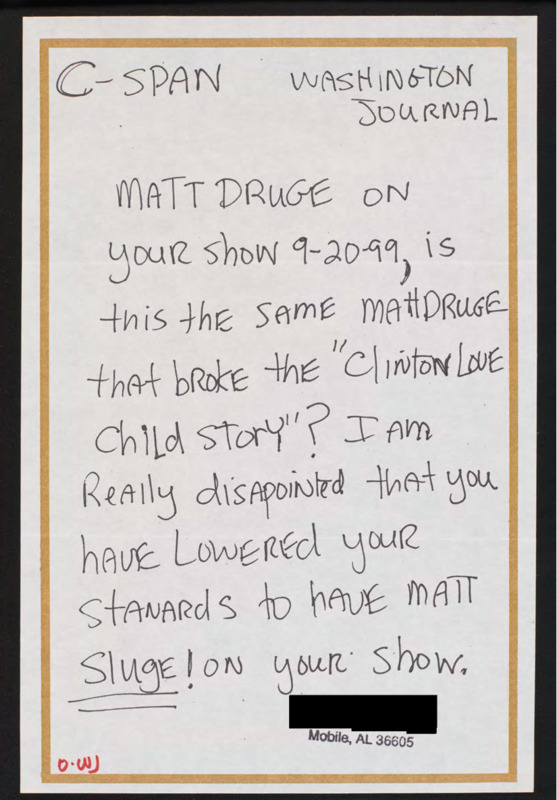 C-SPAN WASHINGTON
JOURNAL
MATT DRUGE ON
your show 9-20-99, is
this the same Matt Druge
that broke the "Clinton Love
Child Story"? I am
Really disapointed that you
have Lowered your
Stanards to have Matt
Sluge! on your show.
Mobile, AL 36605
O-WJ